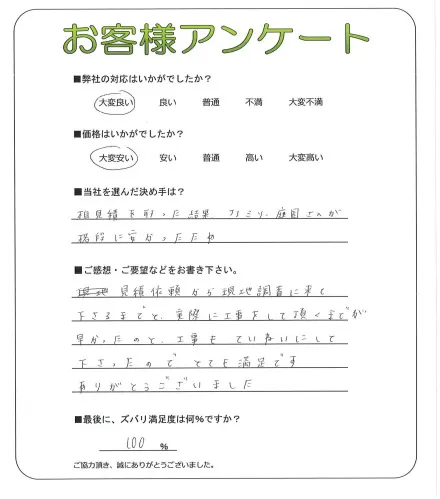 お客様アンケート
■弊社の対応はいかがでしたか？
大変良い 良い 普通 不満 大変不満
■価格はいかがでしたか？
大変安い 安い 普通 高い 大変高い
■当社を選んだ決め手は？
相見積を取った結果、ファミリー庭園さんが
格段に安かったため
■ご感想・ご要望などをお書き下さい。
見積依頼から現地調査に来て
下さるまでと、実際に工事をして頂くまでが
早かったのと、工事もていねいにして
下さったので とても満足です
ありがとうございました
■最後に、ズバリ満足度は何%ですか？
100 %
ご協力頂き、誠にありがとうございました。